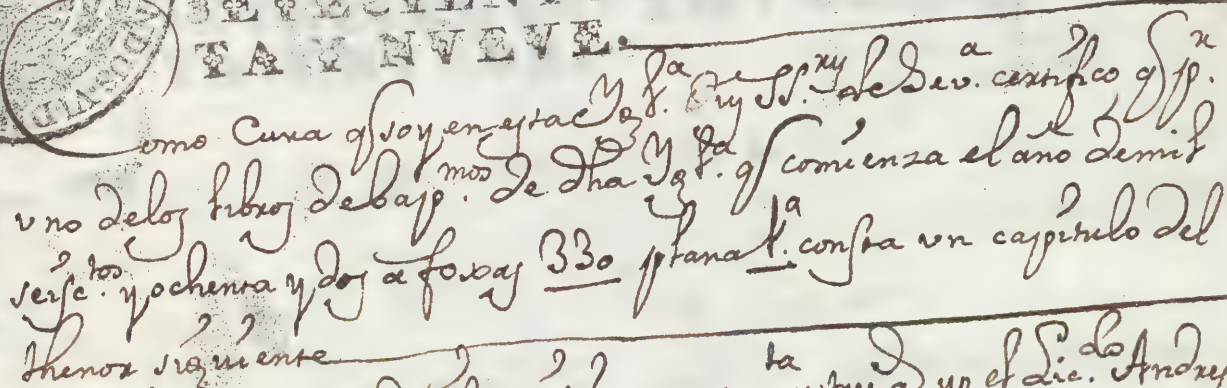 SETECIENT
TA Y NVEVE.
Como Cura q̃ soy en esta Ygl.ª de Sev.ª certifico q̃ p.r
vno delos libros debaptp.mos de dha Ygl.ª q̃ comienza el año demil
seisc.tos y ochenta y dos a foxas 330 plana 1.ª consta vn capitulo del
thenor siguiente
el Lic.do Andres